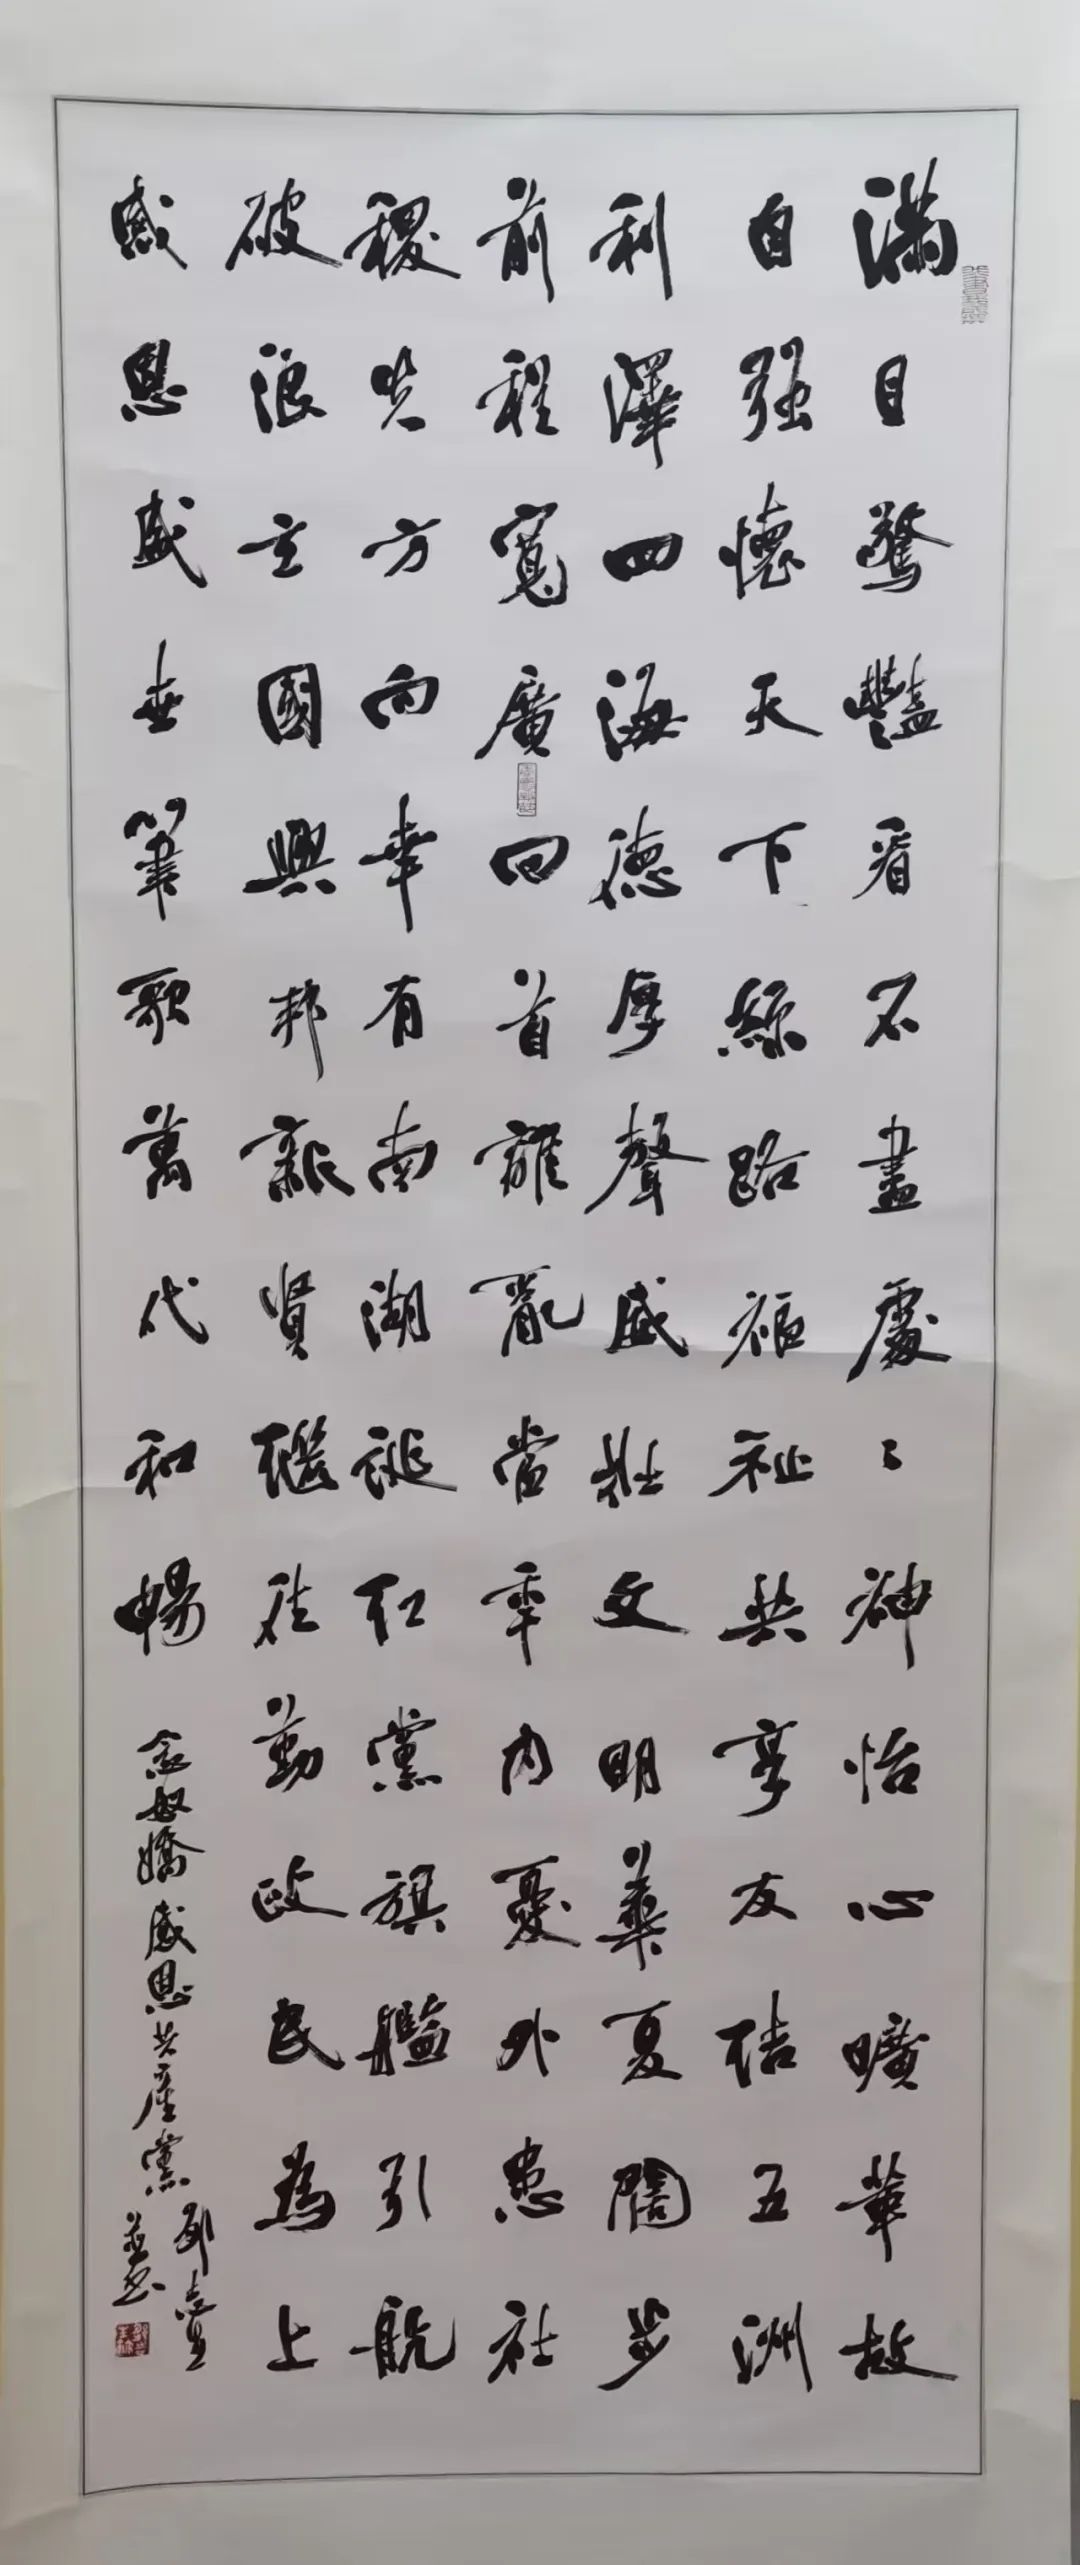 滿目驚豔看不盡處〻神怡心曠華故
自强懷天下絲路福祉共享友结五洲
利澤四海德厚聲威壯文明華夏闊步
前程寬廣回首離亂當年内憂外患社
稷失方向幸有南湖誕红黨旗艦引航
破浪立國興邦新賢繼任勤政民為上
感恩盛世筆歌萬代和暢
念奴嬌感恩共產黨
並書